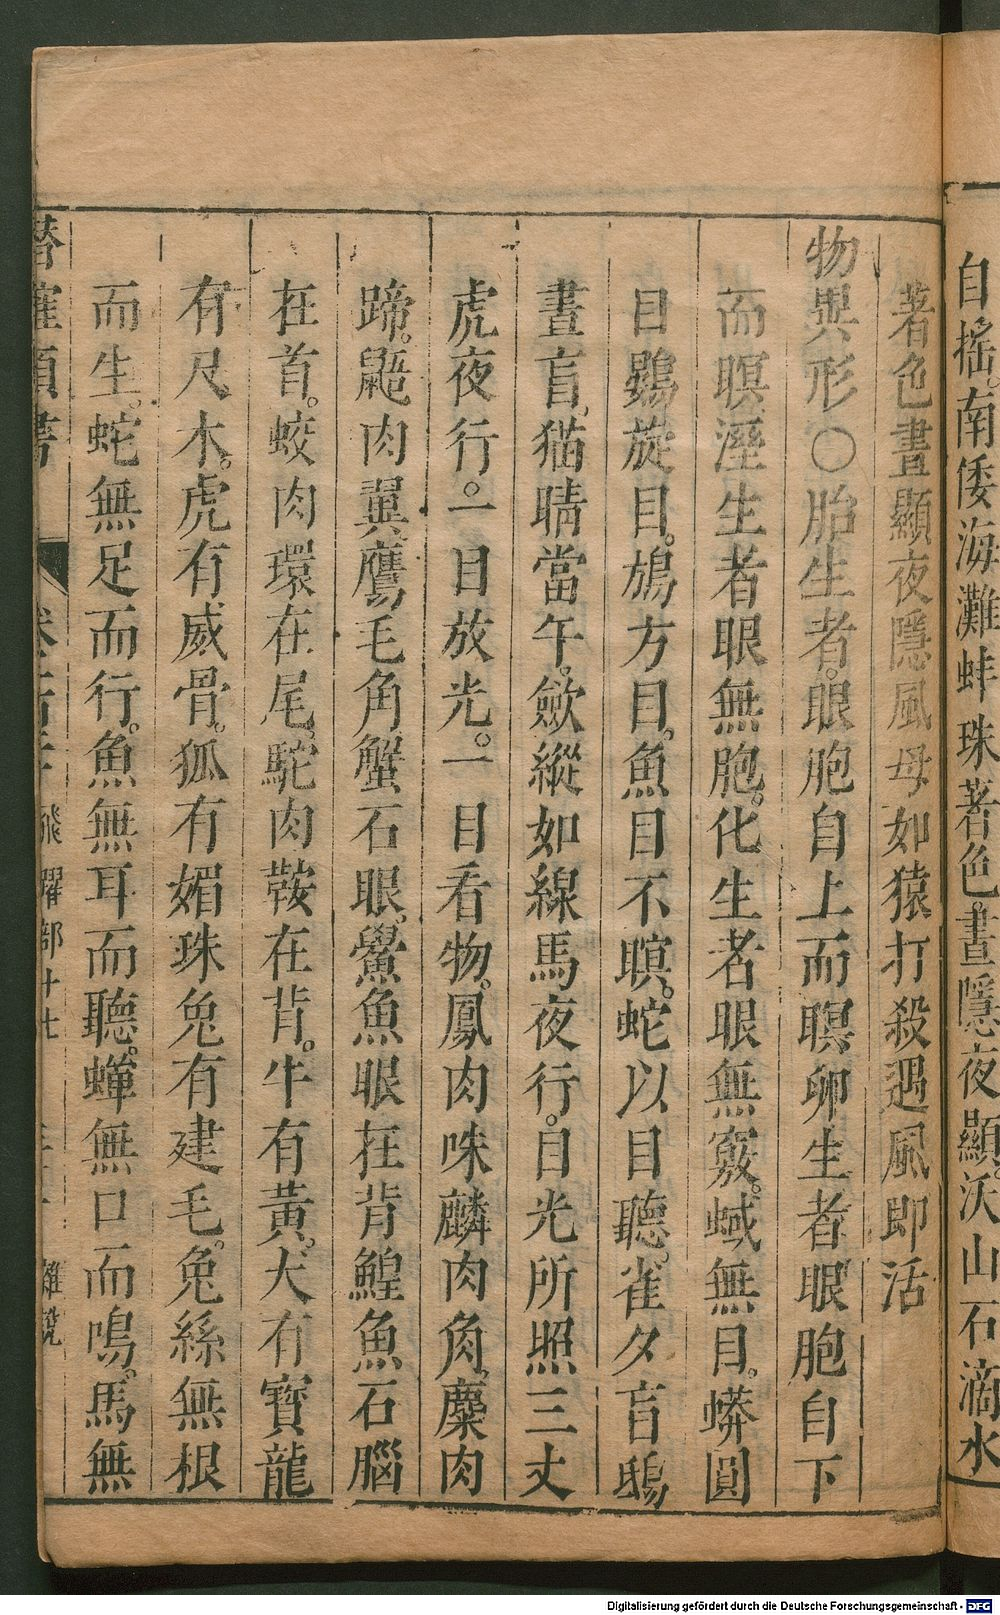 自搖。南倭海灘蚌珠著色。晝隱夜顯。沃山石滴水
著色晝顯夜隱風母如猿打殺遇風即活
物異形○胎生者。眼胞自上而瞑卵生者眼胞自下
而瞑溼生者眼無胞。化生者眼無竅。蜮無目。蟒圓
目鷃旋目。鴆方目。魚目不瞑。蛇以目聽。雀夕盲鴟
晝盲。猫睛當午。歛縱如線馬夜行。目光所照三丈
虎夜行。一目放光。一目看物。鳳肉咮麟肉角。麋肉
蹄。鼯肉翼鷹毛角蟹石眼。鱟魚眼在背鰉魚石腦
在首。蛟肉環在尾。駝肉鞍在背。牛有黃。犬有寶龍
有尺木。虎有威骨。狐有媚珠兔有建毛。兔絲無根
而生。蛇無足而行。魚無耳而聽。蟬無口而鳴。馬無
潛確類書 飛躍部十七 雜說
Digitalisierung gefördert durch die Deutsche Forschungsgemeinschaft - DFG